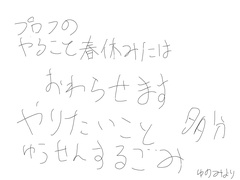 プロフの
やること春休みには
おわらせます
やりたいこと 多分
ゆうせんするごみ
ゆのみより